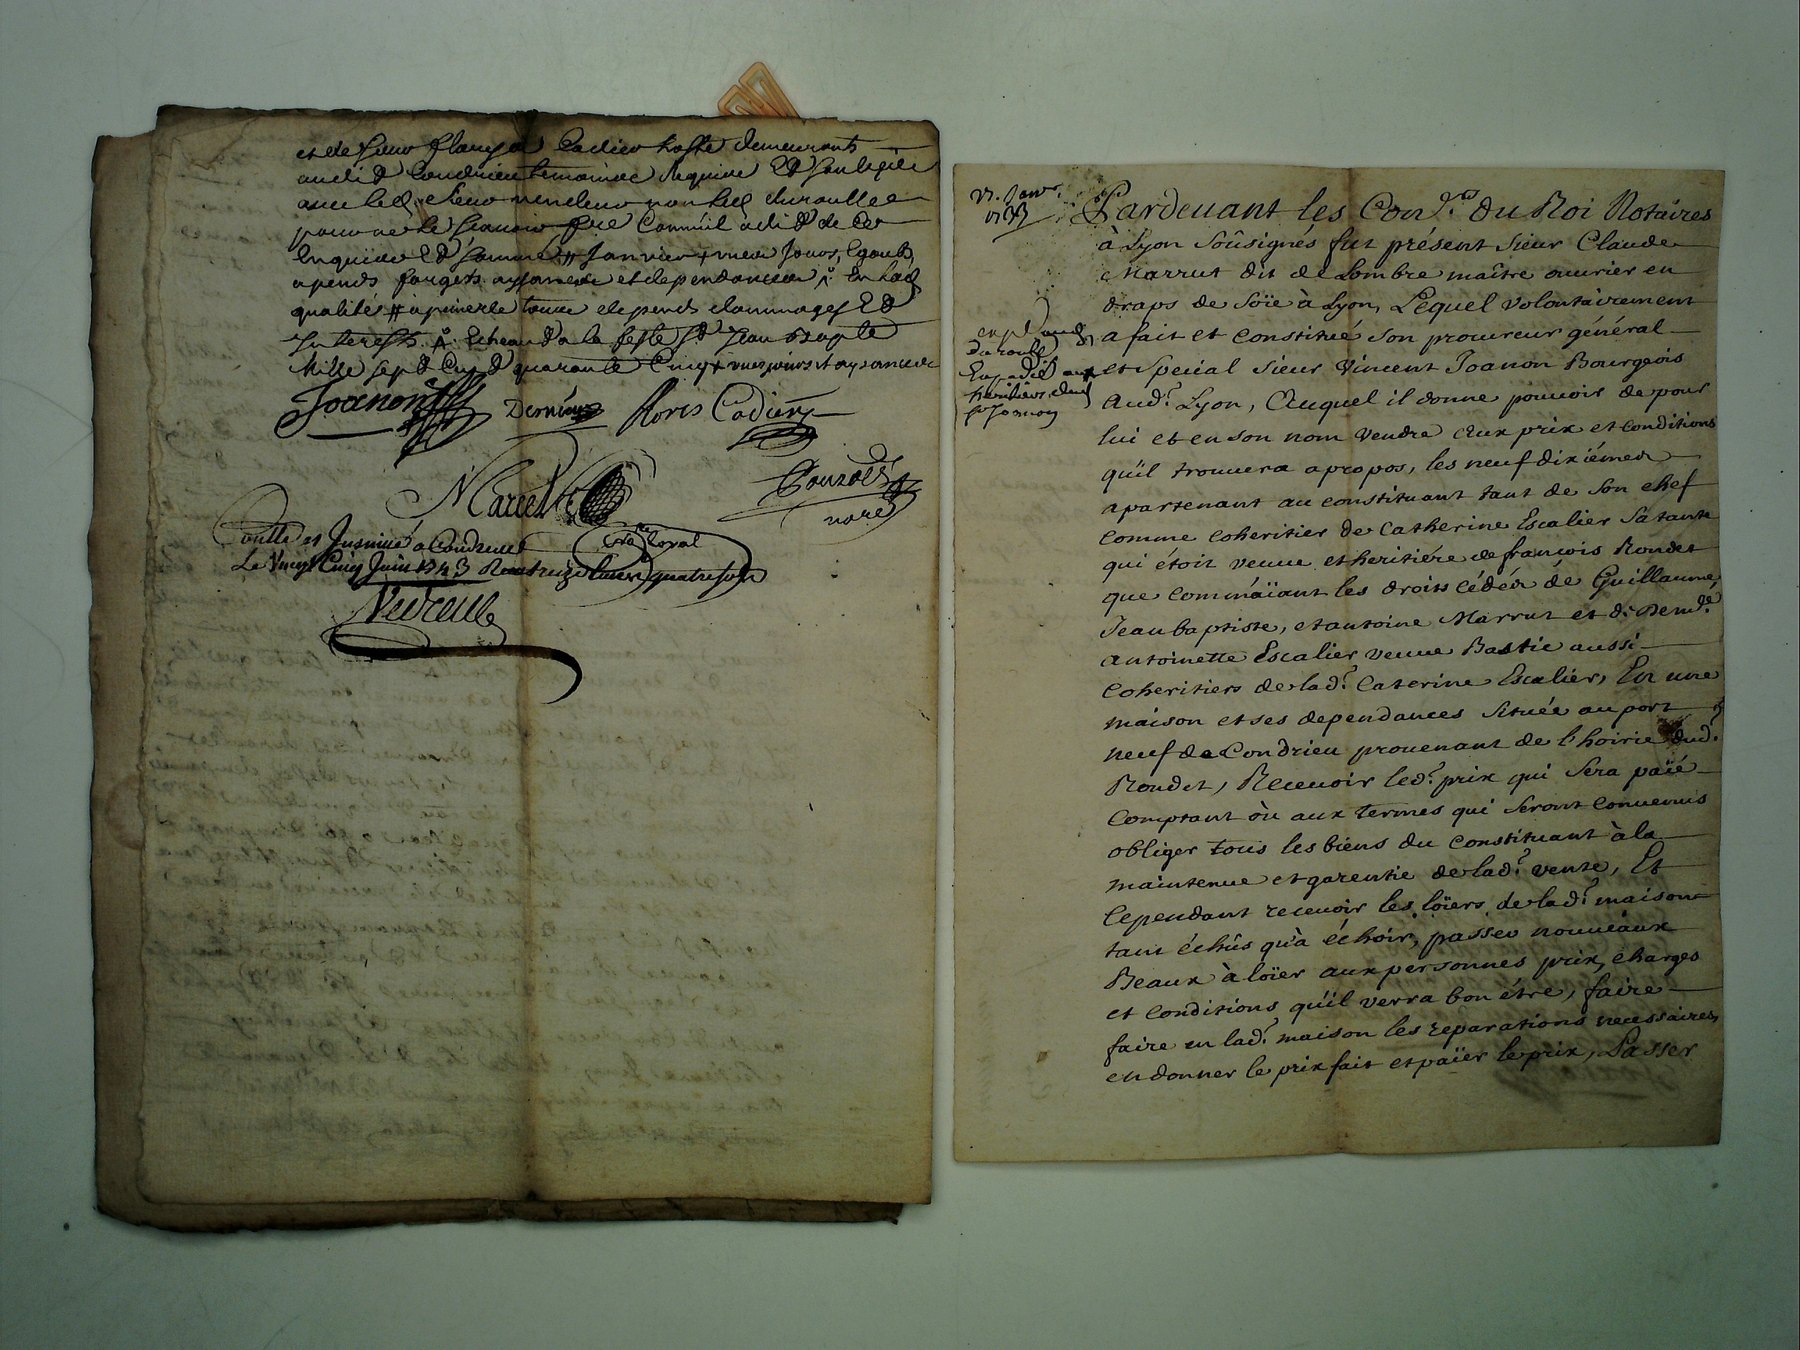 et de sieur Cadier hoste demeurants
audit Condrieu temoins requis Et
avec led. sieur vendeur non led. duroullee
pour ne le scavoir
janvier jours, Egouts,
apends forgets aysances et dependances En lad.
qualité # a peine de tous depends dommages Et
Interests. Echeand a la feste St Jean Baptiste
Mille sept Cent quarante Cinq
Joanon Roris Cadier
Marcel
Gouzolet
nore
Conllé et Insinué a Condrieu
Le Vingt Cinq Juin 1743 Reçu treize livres quatre sols
Not. Royal
Janvr.
Duroulle
heritiers dud.
sr Joanon
Pardevant les Conrs. du Roi Notaires
à Lyon soûsignés fut présent Sieur Claude
Marrut dit de Lombre maître ouvrier en
draps de soïe à Lyon, Lequel volontairement
a fait et constitué son procureur général
et spécial sieur Vincent Joanon Bourgeois
aud.t Lyon, Auquel il donne pouvoir de pour
lui et en son nom vendre aux prix et conditions
qu'il trouvera apropos, les neuf dixiémes
apartenant au constituant tant de son chef
comme coheritier de Catherine Escalier sa tante
qui étoit veuve et heritiére de françois Rondet
que comm'aïant les droits cédés de Guillaume,
Jean baptiste, et antoine Marrut et de Dem.lle
antoinette Escalier veuve Bastie aussi
coheritiers de lad.e Caterine Escalier, En une
maison et ses dependances située au port
neuf de Condrieu provenant de l'hoirie dud.t
Rondet, Recevoir led.t prix qui sera païé
comptant où aux termes qui seront convenus
obliger tous les biens du constituant à la
maintenue et garentie de lad.e vente, Et
cependant recevoir les loïers de lad.e maison
tant échûs qu'à échoir, passer nouveaux
Beaux à loïer aux personnes prix, charges
et conditions qu'il verra bon étre, faire
faire en lad.e maison les reparations necessaires,
en donner le prix fait et païer le prix, Passer